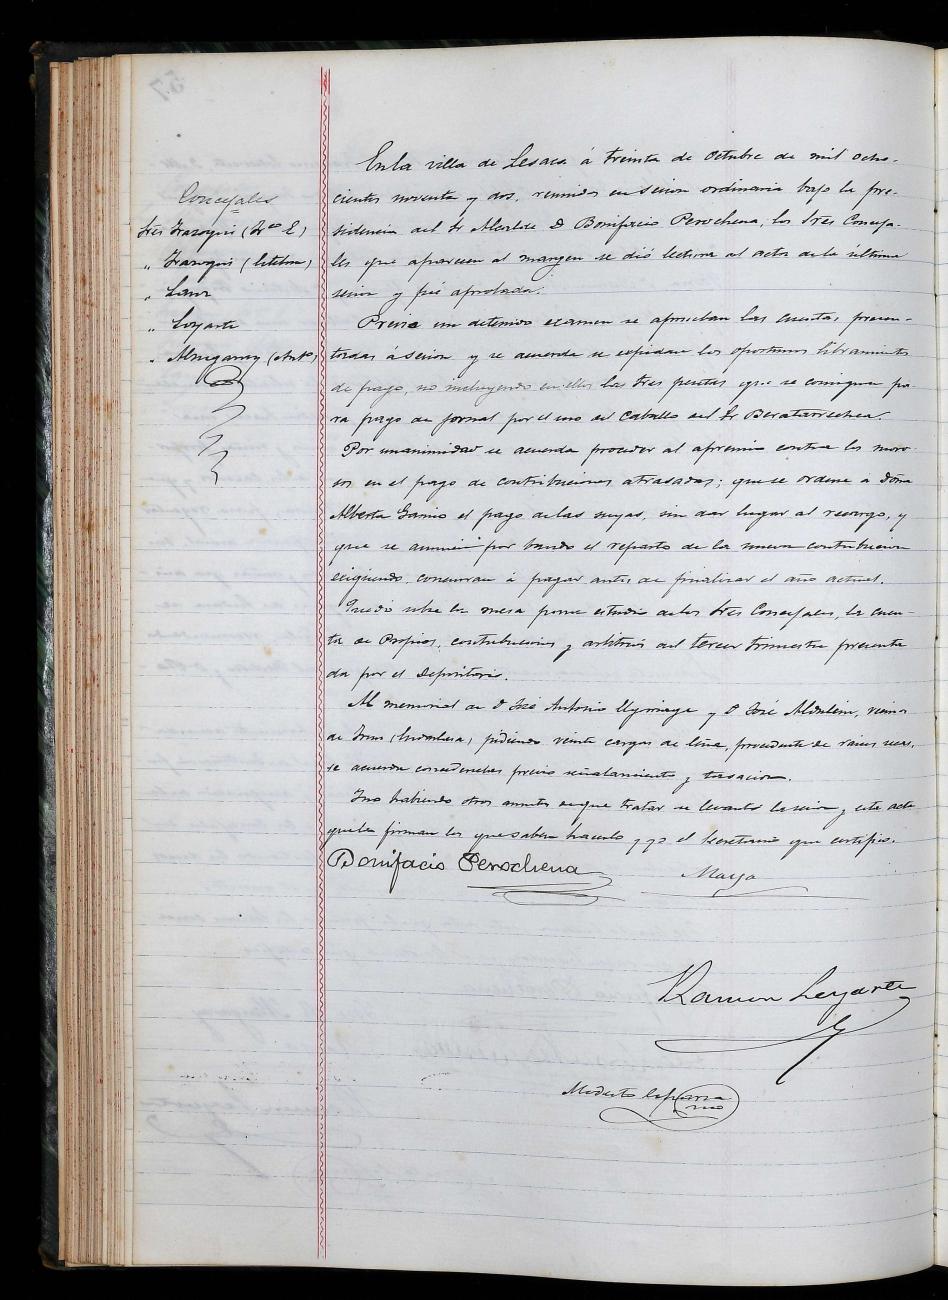 En la villa de Lesaca á treinta de Octubre de mil ocho-
cientos noventa y dos, reunidos en sesion ordinaria bajo la pre-
sidencia del Sr Alcalde D Bonifacio Perochena, los Sres Conceja-
les que aparecen al margen se dió lectura al acta de la última
sesion y fué aprobada.
Concejales
Sres (Fco E)
" (Esteban)
" Sanz
" Loyarte
" (Anto)
Previo un detenido examen se aprueban las cuentas presen-
tadas á sesion y se acuerda se expidan los oportunos libramientos
de pago, no incluyendo en ellos las tres pesetas que se consignan pa-
ra pago de jornal por el uso del caballo del Sr Beratarrechea.
Por unanimidad se acuerda proceder al apremio contra los moro-
sos en el pago de contribuciones atrasadas; que se ordene á doña
Alberta el pago de las suyas, sin dar lugar al recargo, y
que se anuncie por bando el reparto de la nueva contribucion
exigiendo, concurran á pagar antes de finalizar el año actual.
Quedó sobre la mesa para estudio de los Sres Concejales, la cuen-
ta de Propios, contribuciones y arbitrios del tercer trimestre presenta
da por el Depositario.
Al memorial de D José Antonio y D José vecinos
de pidiendo veinte cargas de leña, procedente de raices secas,
se acuerda concederles previo señalamiento y tasacion.
Y no habiendo otros asuntos de que tratar se levantó la sesion y este acta
que la firman los que saben hacerlo y yo el Secretario que certifico.
Bonifacio Perochena Marzo
Ramon Loyarte
Modesto